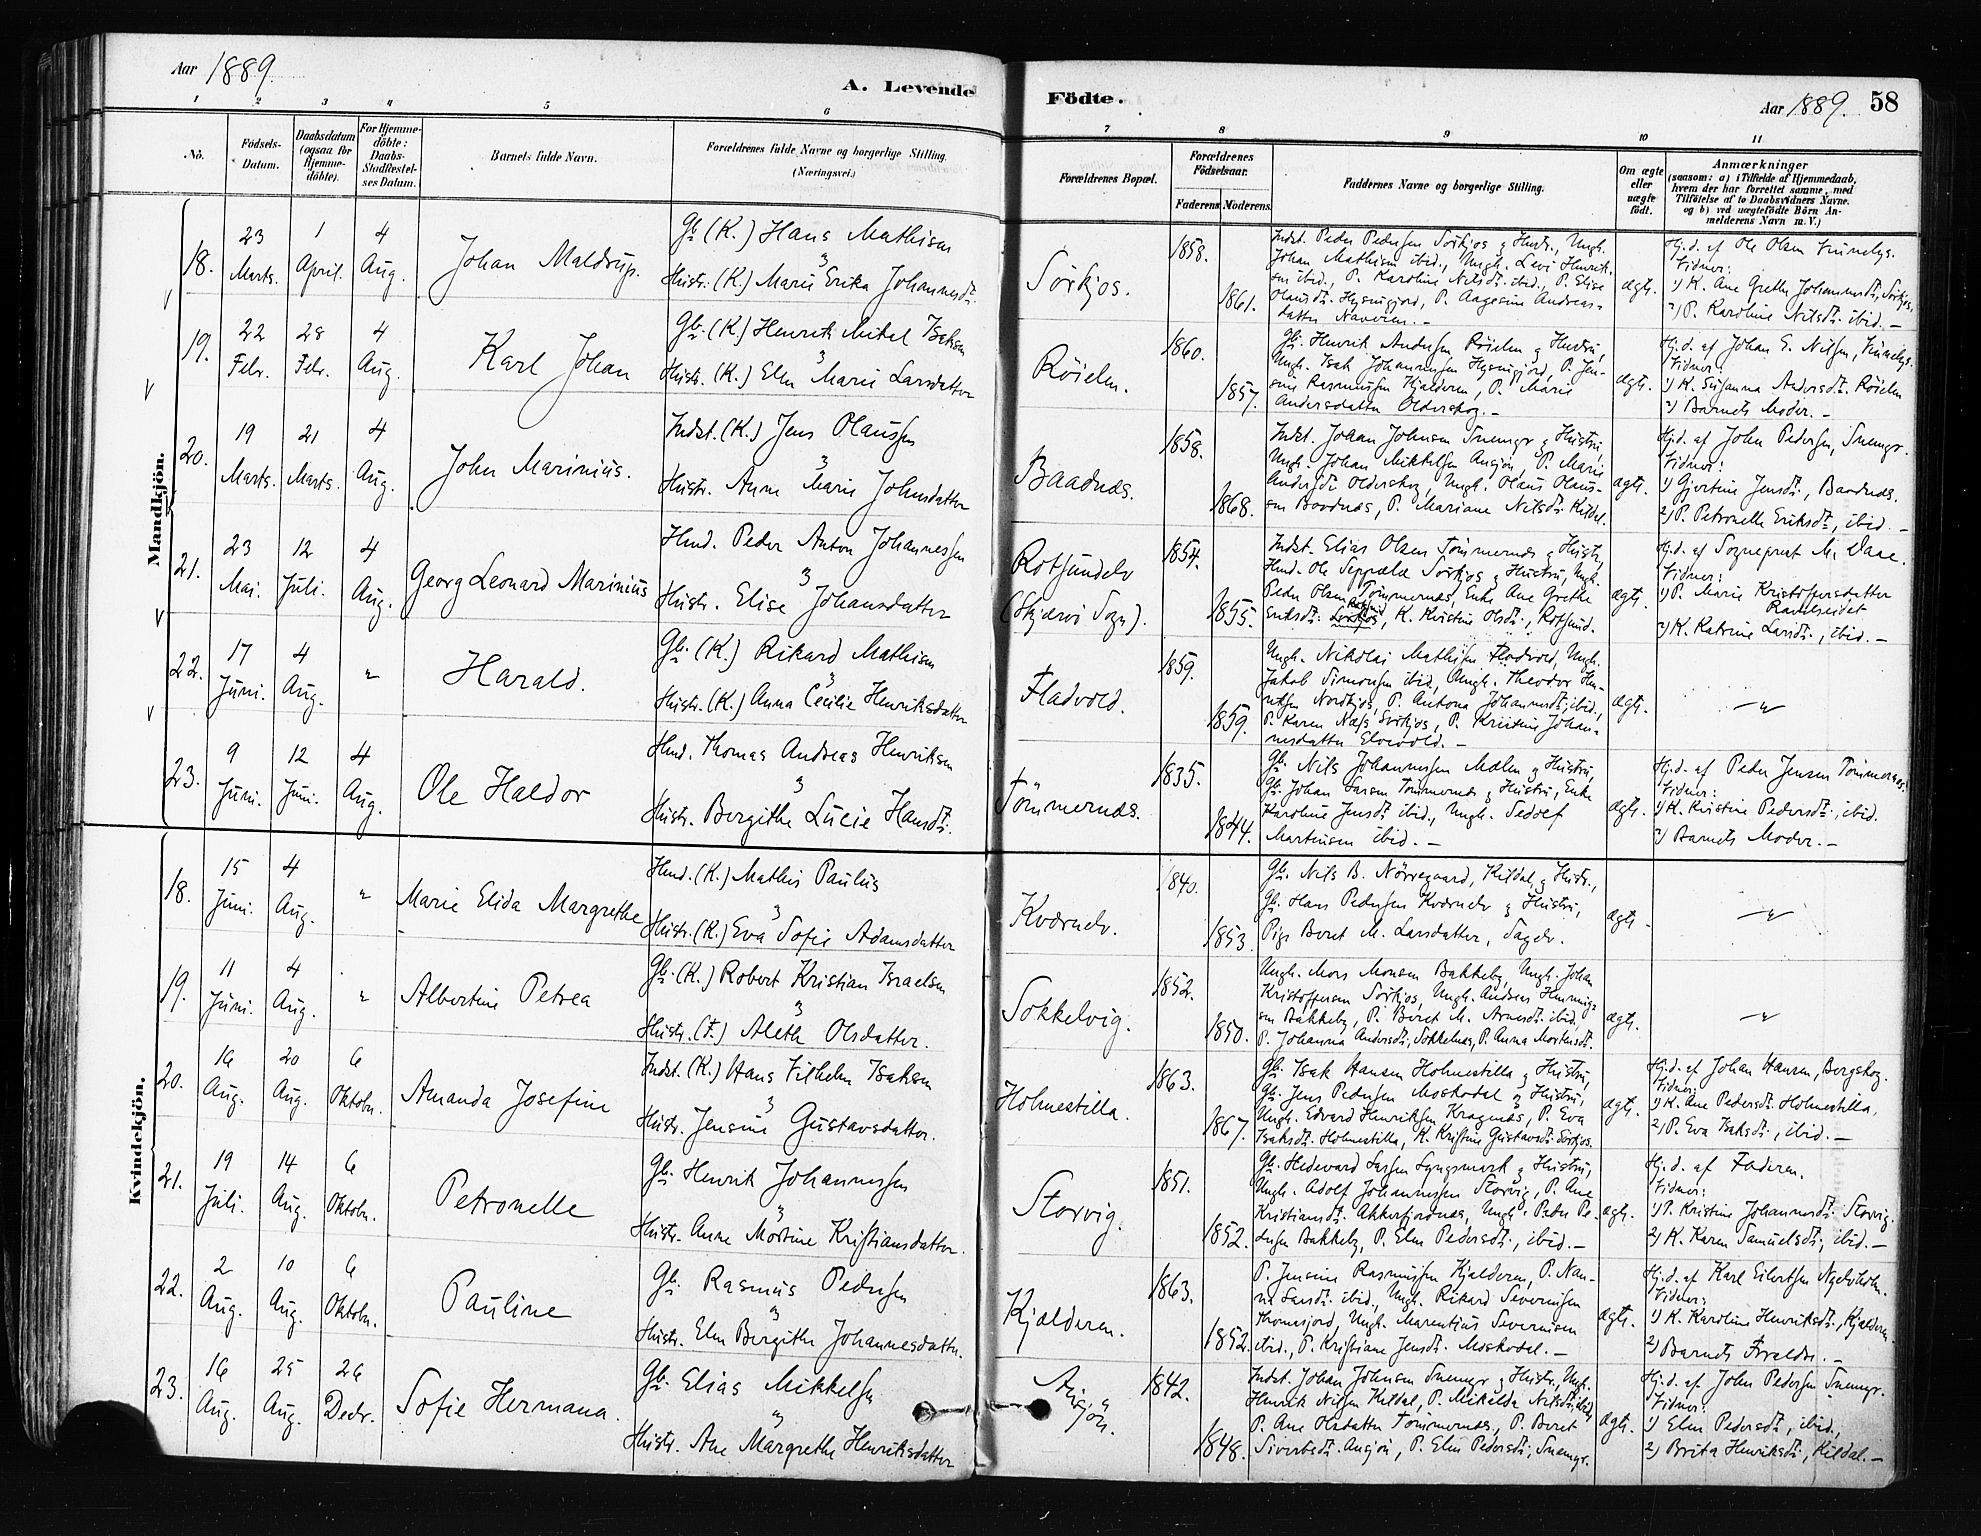 Aar 1889.
A. Levende Födte.
Aar 1889. 58
1 2 3 4 5 6 7 8 9 10 11
No.
Födsels-Datum.
Daabsdatum (ogsaa for Hjemme-döbte).
For Hjemme-döbte: Daabs-Stadfestel-ses Datum.
Barnets fulde Navn.
Forældrenes fulde Navne og borgerlige Stilling.
(Næringsvei.)
Forældrenes Bopæl.
Forældrenes Födselsaar.
Faderens. Moderens.
Faddernes Navne og borgerlige Stilling.
Om ægte eller uægte födt.
Anmærkninger
(saasom: a) i Tilfælde af Hjemmedaab,
hvem der har forrettet samme, med
Tilföielse af to Daabsvidners Navne.
og b) ved uægtefödte Börn An-
melderens Navn m. V.)
Mandkjön.
18. 23 Marts. 1 April. 4 Aug. Johan Maldrup.
Gb. (K.) Hans Mathisen
Hustr. (K.) Marie Erika Johannesdtr.
Sörkjos. 1858. 1861.
Indst. Peder Pedersen Sörkjos og Hustr., Ungk.
Johan Mathisen ibid., Ungk. Levi Henrik-
sen ibid., P. Karoline Nilsdtr. ibid., P. Elise
Olausdtr. P. Aagesine Andreas-
datter
ægte.
Hj. d. af Ole Olsen
Vidner:
1) K. Ane Grethe Johannesdtr., Sörkjos,
2) P. Karoline Nilsdtr. ibid. —
19. 22 Febr. 28 Febr. 4 Aug. Karl Johan
Gb. (K.) Henrik Mikal Isaksen
Hustr. (K.) Elen Marie Larsdatter
Röielen. 1860. 1857.
Gb. Henrik Andersen Röielen og Hustru,
Ungk. Isak Johannessen P. Jen-
sine Rasmussen Kjelderen, P. Marie
Andersdatter Olderskog. —
ægte.
Hj. d. af Johan E. Nilsen,
Vidner:
1) K. Susanna Andersdtr. Röielen
2) Barnets Moder. —
20. 19 Marts. 21 Marts. 4 Aug. John Marinius.
Indst. (K.) Jens Olaussen
Hustr. Anne Marie Johnsdatter
Baadnæs. 1858. 1868.
Indst. Johan Johnsen Snemyr og Hustru,
Ungk. Johan Mikkelsen P. Marie
Andersdtr. Olderskog, Ungk. Olaus Olaus-
sen Baadnæs, P. Mariane Nilsdtr. Kildal.
ægte.
Hj. d. af John Pedersen, Snemyr.
Vidner:
1) Gjertine Jensdtr., Baadnæs.
2) P. Petronelle Eriksdtr., ibid. —
21. 23 Mai. 12 Juli. 4 Aug. Georg Leonard Marinius
Hmd. Peder Anton Johannessen
Hustr. Elise Johansdatter
Rotsundelv
(Skjærvö Sogn). 1854. 1855.
Indst. Elias Olsen Tömmernæs og Hustr.,
Hmd. Ole Seppælæ Sörkjos og Hustru, Ungk.
Peder Olsen Tömmernæs, Enke Ane Grethe
Eriksdtr. K. Kristine Olsdtr., Rotsund.
ægte.
Hj. d. af Sogneprest M. Daae.
Vidner:
1) P. Marie Kristoffersdatter
Ravelseidet
2) K. Katrine Larsdtr., ibid. —
22. 17 Juni. 4 Aug. " Harald.
Gb. (K.) Rikard Mathisen
Hustr. (K.) Anna Cecilie Henriksdatter
Fladvold. 1859. 1859.
Ungk. Nikolai Mathisen Fladvold, Ungk.
Jakob Simonsen ibid., Ungk. Theodor Hen-
riksen Nordkjos, P. Antona Johannesdtr. ibid.,
P. Karen Næss, Sörkjos, P. Kristine Johan-
nesdatter Elvevold. —
ægte.
—"—
23. 9 Juni. 12 Juni. 4 Aug. Ole Haldor
Hmd. Thomas Andreas Henriksen
Hustr. Bergithe Lucie Hansdtr.
Tömmernæs. 1835. 1844.
Gb. Nils Johannessen Mælen og Hustru,
Gb. Johan Larsen Tömmernæs og Hustru, Enke
Karoline Jensdtr. ibid., Ungk. Sedolf
Martinsen ibid. —
ægte.
Hj. d. af Peder Jensen Tömmernæs.
Vidner:
1) K. Kristine Pedersdtr., ibid.
2) Barnets Moder. —
Kvindekjön.
18. 15 Juni. 4 Aug. " Marie Elida Margrethe
Hmd. (K.) Mathis Paulus
Hustr. (K.) Eva Sofie Adamsdatter
Kværnelv. 1840. 1853.
Gb. Nils B. Nörregaard, Kildal og Hustr.,
Gb. Hans Pedersen Kværnelv og Hustru,
Pige Beret M. Larsdatter, Sagelv.
ægte.
—"—
19. 11 Juni. 4 Aug. " Albertine Petrea
Gb. (K.) Robert Kristian Israelsen
Hustr. (F.) Aleth Olsdatter.
Sokkelvig. 1852. 1850.
Ungk. Mons Monsen Bakkeby, Ungk. Johan
Kristoffersen Sörkjos, Ungk. Andreas Henning-
sen Bakkeby, P. Beret M. Arnesdtr. ibid.,
P. Johanna Andersdtr., Sokkelnæs, P. Anna Mortensdtr.
ægte.
—"—
20. 16 Aug. 20 Aug. 6 Oktobr. Amanda Josefine
Indst. (K.) Hans Vilhelm Isaksen
Hustr. Jensine Gustavsdatter.
Holmestilla. 1863. 1867.
Gb. Isak Hansen Holmestilla og Hustru,
Gb. Jens Pedersen Moskodal og Hustru,
Ungk. Edvard Henriksen Kragnæs, P. Eva
Isaksdtr. Holmestilla, K. Kristine Gustavsdtr. Sörkjos.
ægte.
Hj. d. af Johan Hansen, Bergskog.
Vidner:
1) K. Ane Pedersdtr. Holmestilla,
2) P. Eva Isaksdtr., ibid. —
21. 19 Juli. 14 Aug. 6 Oktobr. Petronelle
Gb. Henrik Johannessen
Hustr. Anne Mortine Kristiansdatter.
Storvig. 1851. 1852.
Gb. Hedevard Larsen Lyngsmark og Hustru,
Ungk. Adolf Johannessen Storvig, P. Ane
Kristiansdtr. Akkerfjordnæs, Ungk. Peder Pe-
dersen Bakkeby, P. Elen Pedersdtr., ibid. —
ægte.
Hj. d. af Faderen.
Vidner:
1) P. Kristine Johannesdtr. Storvig.
2) K. Karen Samuelsdtr., ibid. —
22. 2 Aug. 10 Aug. 6 Oktobr. Pauline
Gb. Rasmus Pedersen
Hustr. Elen Bergithe Johannesdatter.
Kjælderen. 1863. 1852.
P. Jensine Rasmussen Kjælderen, P. Nan-
na Larsdtr. ibid., Ungk. Rikard Severinsen
Ungk. Marentius Severinsen
ibid., P. Kristiane Jensdtr. Moskodal. —
ægte.
Hj. d. af Karl Eilertsen
Vidner:
1) K. Karoline Henriksdtr., Kjælderen.
2) Barnets Forældre. —
23. 16 Aug. 25 Aug. 26 Decbr. Sofie Hermana.
Gb. Elias Mikkelsen
Hustr. Ane Margrethe Henriksdatter
1842. 1848.
Indst. Johan Johnsen Snemyr og Hustr., Ungk.
Henrik Nilsen Kildal, P. Mikalda Nilsdtr. ibid.,
P. Ane Olsdatter Tömmernæs, P. Beret
Sivertsdtr. P. Elen Pedersdtr., Snemyr.
ægte.
Hj. d. af John Pedersen Snemyr.
Vidner:
1) Elen Pedersdtr., ibid.,
2) Brita Henriksdtr., Kildal. —